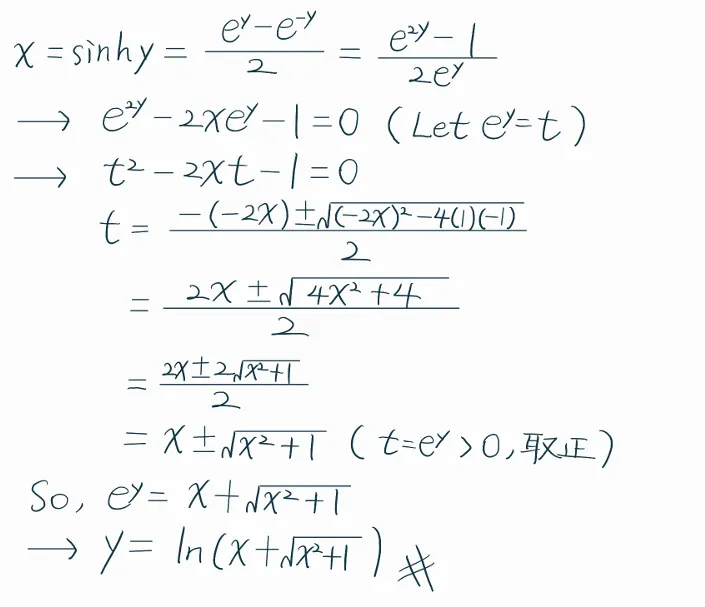 x = sinh y = (e^y − e^{-y})/2 = (e^{2y} − 1)/(2e^y)
→ e^{2y} − 2xe^y − 1 = 0 (Let e^y = t)
→ t² − 2xt − 1 = 0
t = (−(−2x) ± √((−2x)² − 4(1)(−1)))/2
= (2x ± √(4x² + 4))/2
= (2x ± 2√(x² + 1))/2
= x ± √(x² + 1) (t = e^y > 0, 取正)
So, e^y = x + √(x² + 1)
→ y = ln(x + √(x² + 1)) #